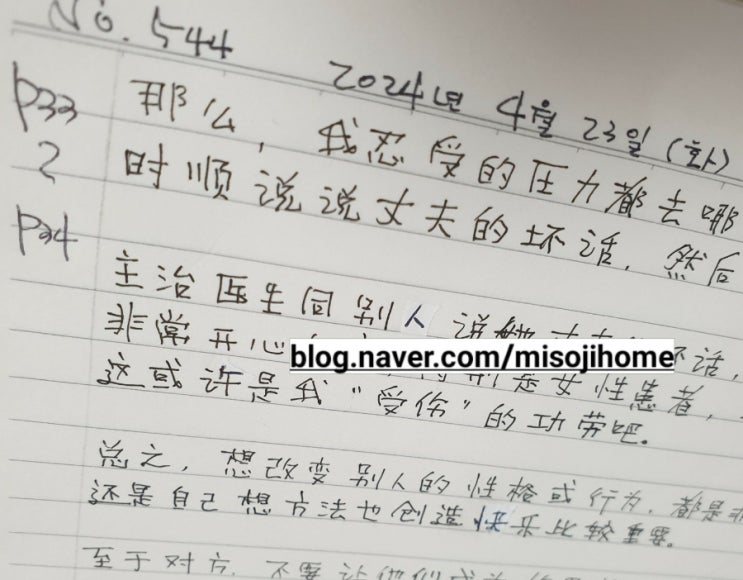 No. 544
2024년 4월 23일 (화)
p33 那么, 我忍受的压力都去哪
2 时顺说说丈夫的坏话, 然后
p34
主治医生同别人说她丈夫的坏话,
非常开心
blog.naver.com/misojihome
别是女性患者,
这或许是我“受伤”的功劳吧。
总之, 想改变别人的性格或行为, 都是非
还是自己想方法也创造快乐比较重要。
至于对方, 不要让他们成为